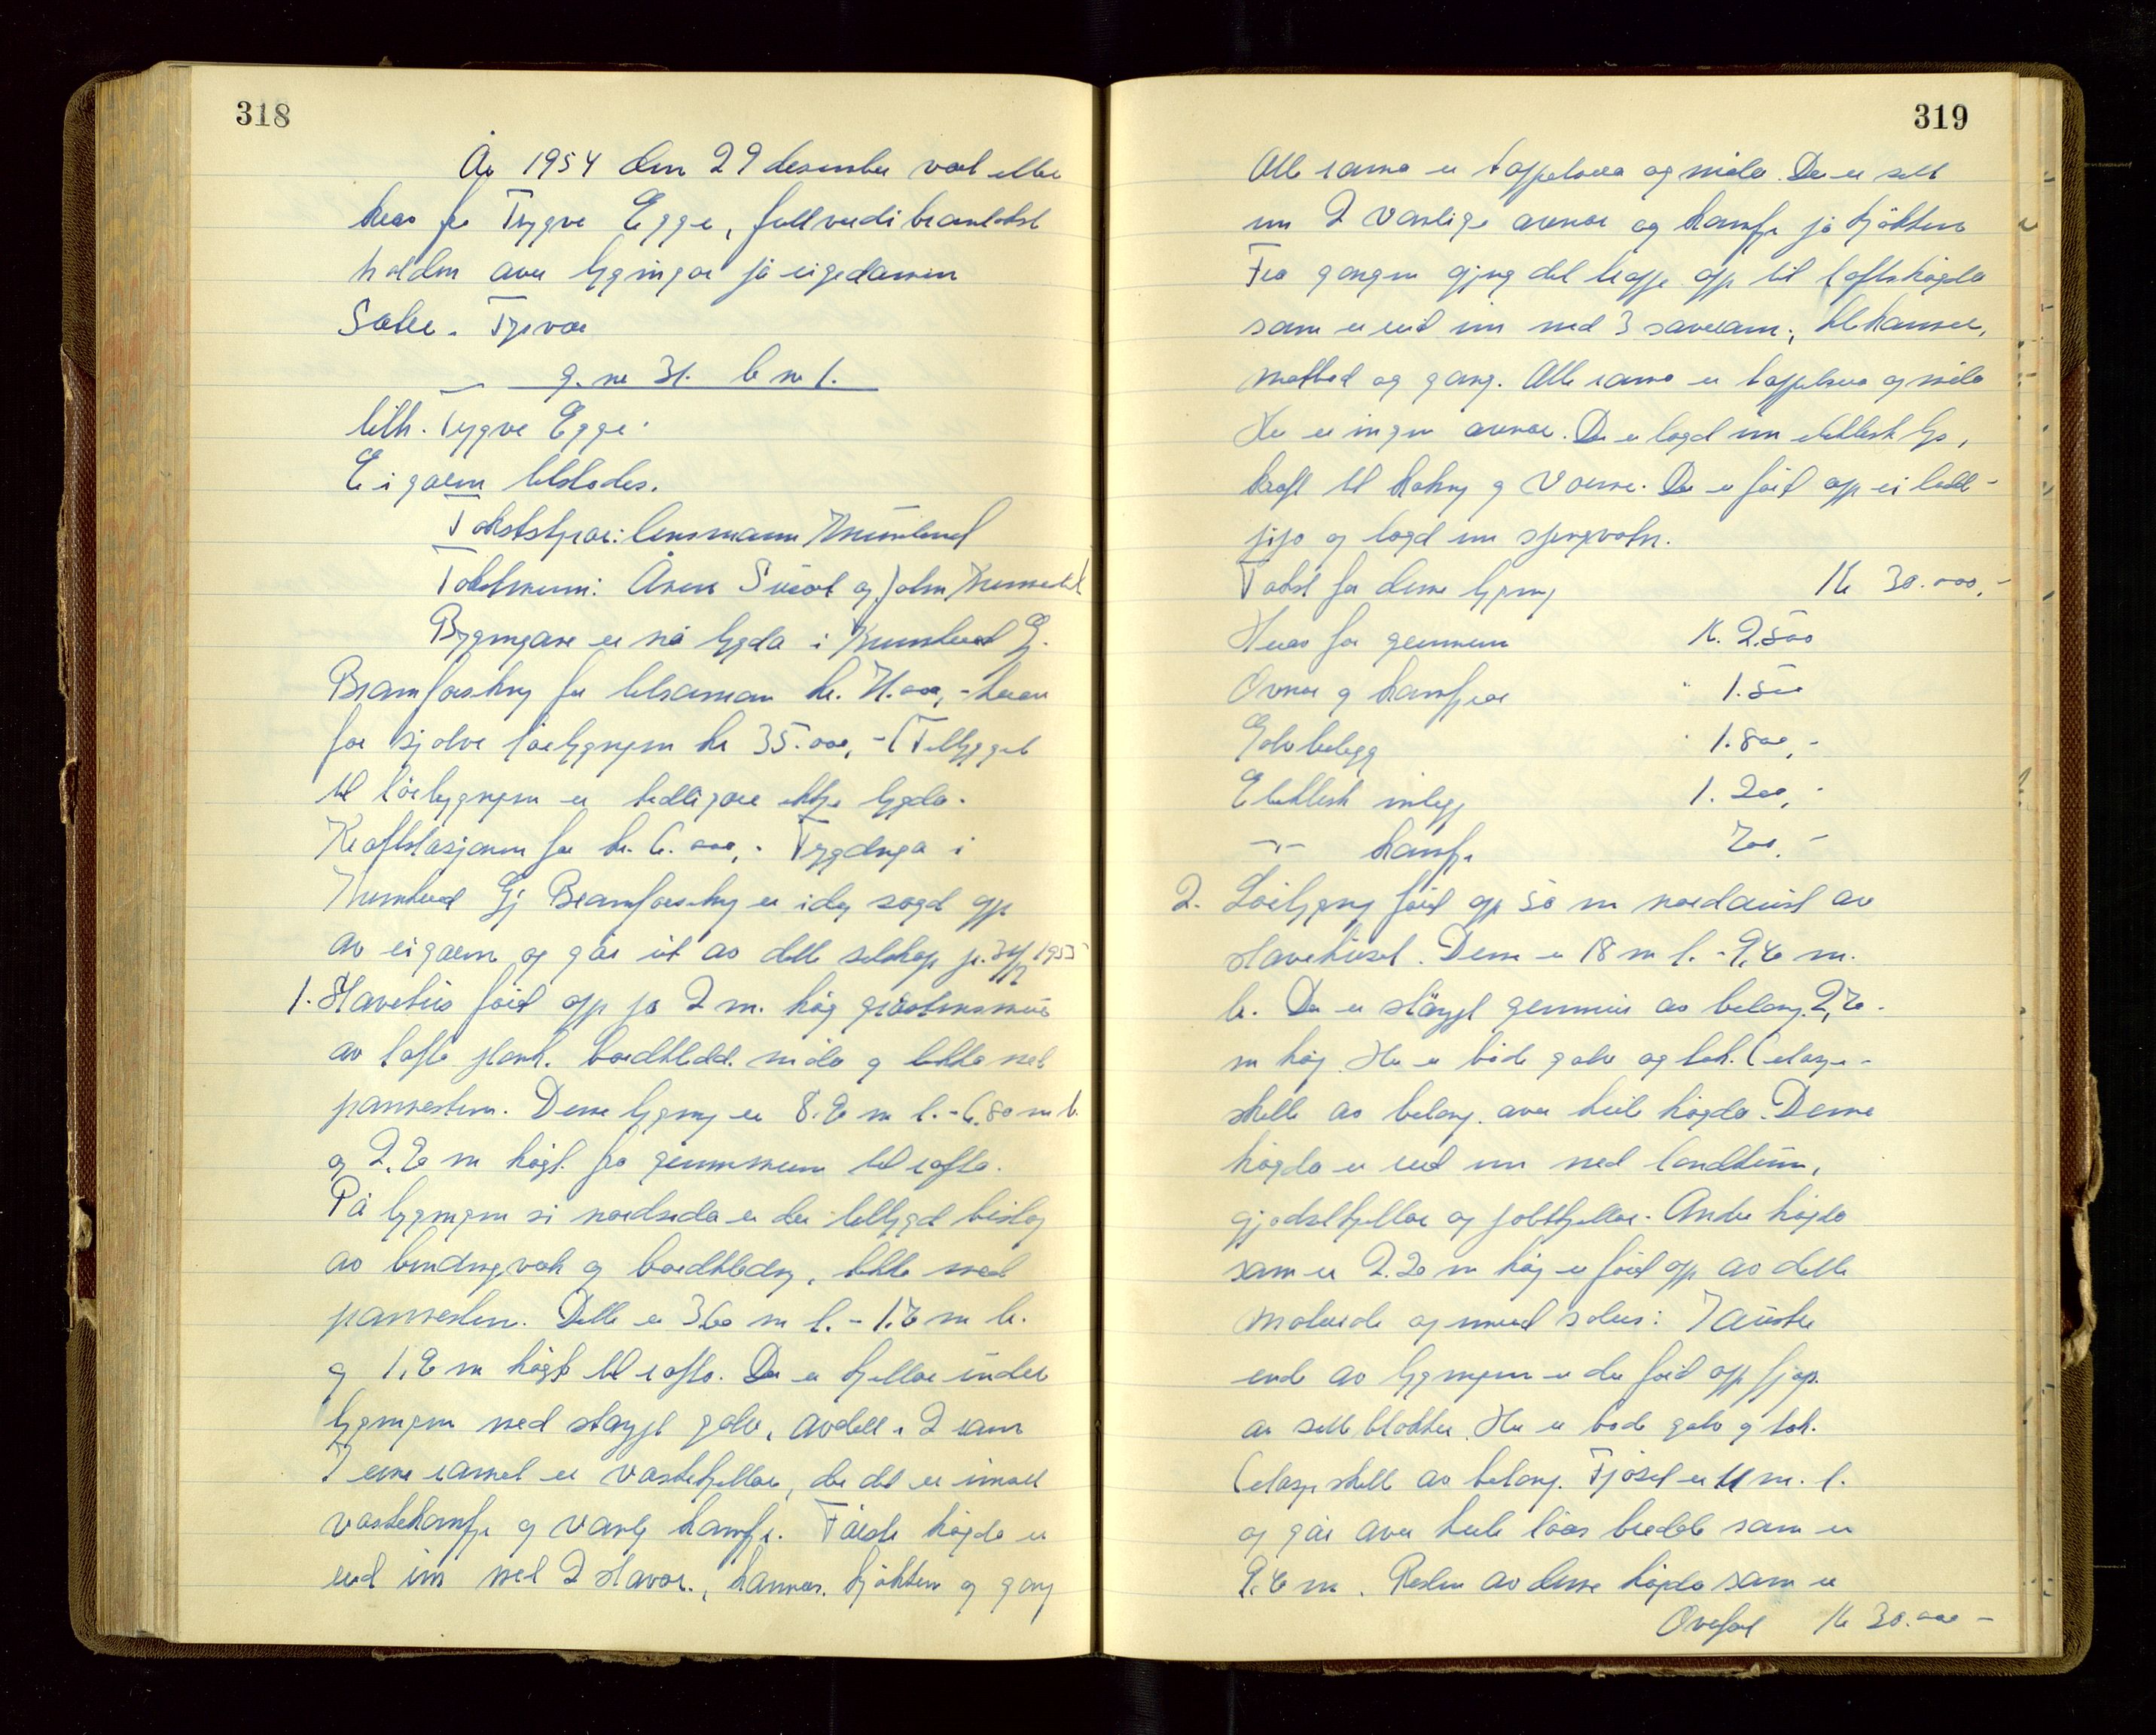 318
År 1954 den 29 desember vart etter
krav fra Trygve Egge, fullverdi branntakst
halden over bygningar på eigedomen
Tysvær
g. nr 31. b nr 1.
tilh. Trygve Egge.
Eigaren tilstades.
Takststyrar: lensmann
Takstmenn: og John
Bygningane er nå bygda i
Brannforsikring for tilsaman kr.
for sjølve løebygningen kr 35.000,- (Tilbygget
til løebygningen er tidligare ikkje bygda.
Kraftstasjonen for kr. 6.000,- Trygdinga i
Brannforsikring er idag sagd opp
av eigaren og går ut av dette selskap pr. 1955
1. Stavehus førd opp på 2 m. høg gråsteinsmur
av lafta plank. bordkledd. måla og tekka med
pannestein. Denne bygning er m l. - 6,80 m b.
og m høgt. fra grunnmuren til rafta.
På bygningen si nordsida er der tilbygd bislag
av bindingverk og bordkledning, tekka med
pannestein. Dette er 3,60 m l. - m b.
og m høgt til rafta. Der er kjellar under
bygningen med støypt golv, avdelt i 2 rom
I eine romet er vaskekjellar, der det er innsett
vaskekomfyr og vanlig komfyr. Første høgda er
reid inn med 2 stover, kammer. kjøkken og gang
319
Alle romma er tappetsera og måla. Der er sett
inn 2 vanlige omnar og komfyr på kjøkken
Fra gangen gjeng det trapp opp til loftshøgda
som er reid inn med 3 soverom, kammer,
matbod og gang. Alle romma er tappetsera og måla
Her er ingen omnar. Der er lagd inn elektrisk lys,
kraft til koking og varme. Der er førd opp ei
pipa og lagd inn springvatn.
Takst for denne bygning Kr 30.000,-
Herav for grunnmur K. 2.500
Ovnar og komfyrar " 1.500
Golvbelegg " 1.800,-
Elektrisk innlegg 1.200,-
-"- komfyr 700,-
2. Løebygning førd opp 50 m nordaust av
stavehuset. Denne er 18 m l. - 9,60 m.
b. Der er støypt grunnmur av betong.
m høg. Her er både golv og tak. (etasje-
skille av betong. over heile høgda. Denne
høgda er reid inn med landkum,
gjødselkjellar og potetkjellar. Andre høgda
som er 2.20 m høg er førd opp av dette
materiale og innreid soleis: I austre
ende av bygningen er der førd opp fjøs.
av sette blokker. Her er både golv og tak.
(etasjeskille av betong. Fjøset er 11 m. l.
og går over heile løas bredde som er
9.60 m. Resten av denne høgda som er
Overført Kr 30.000 -